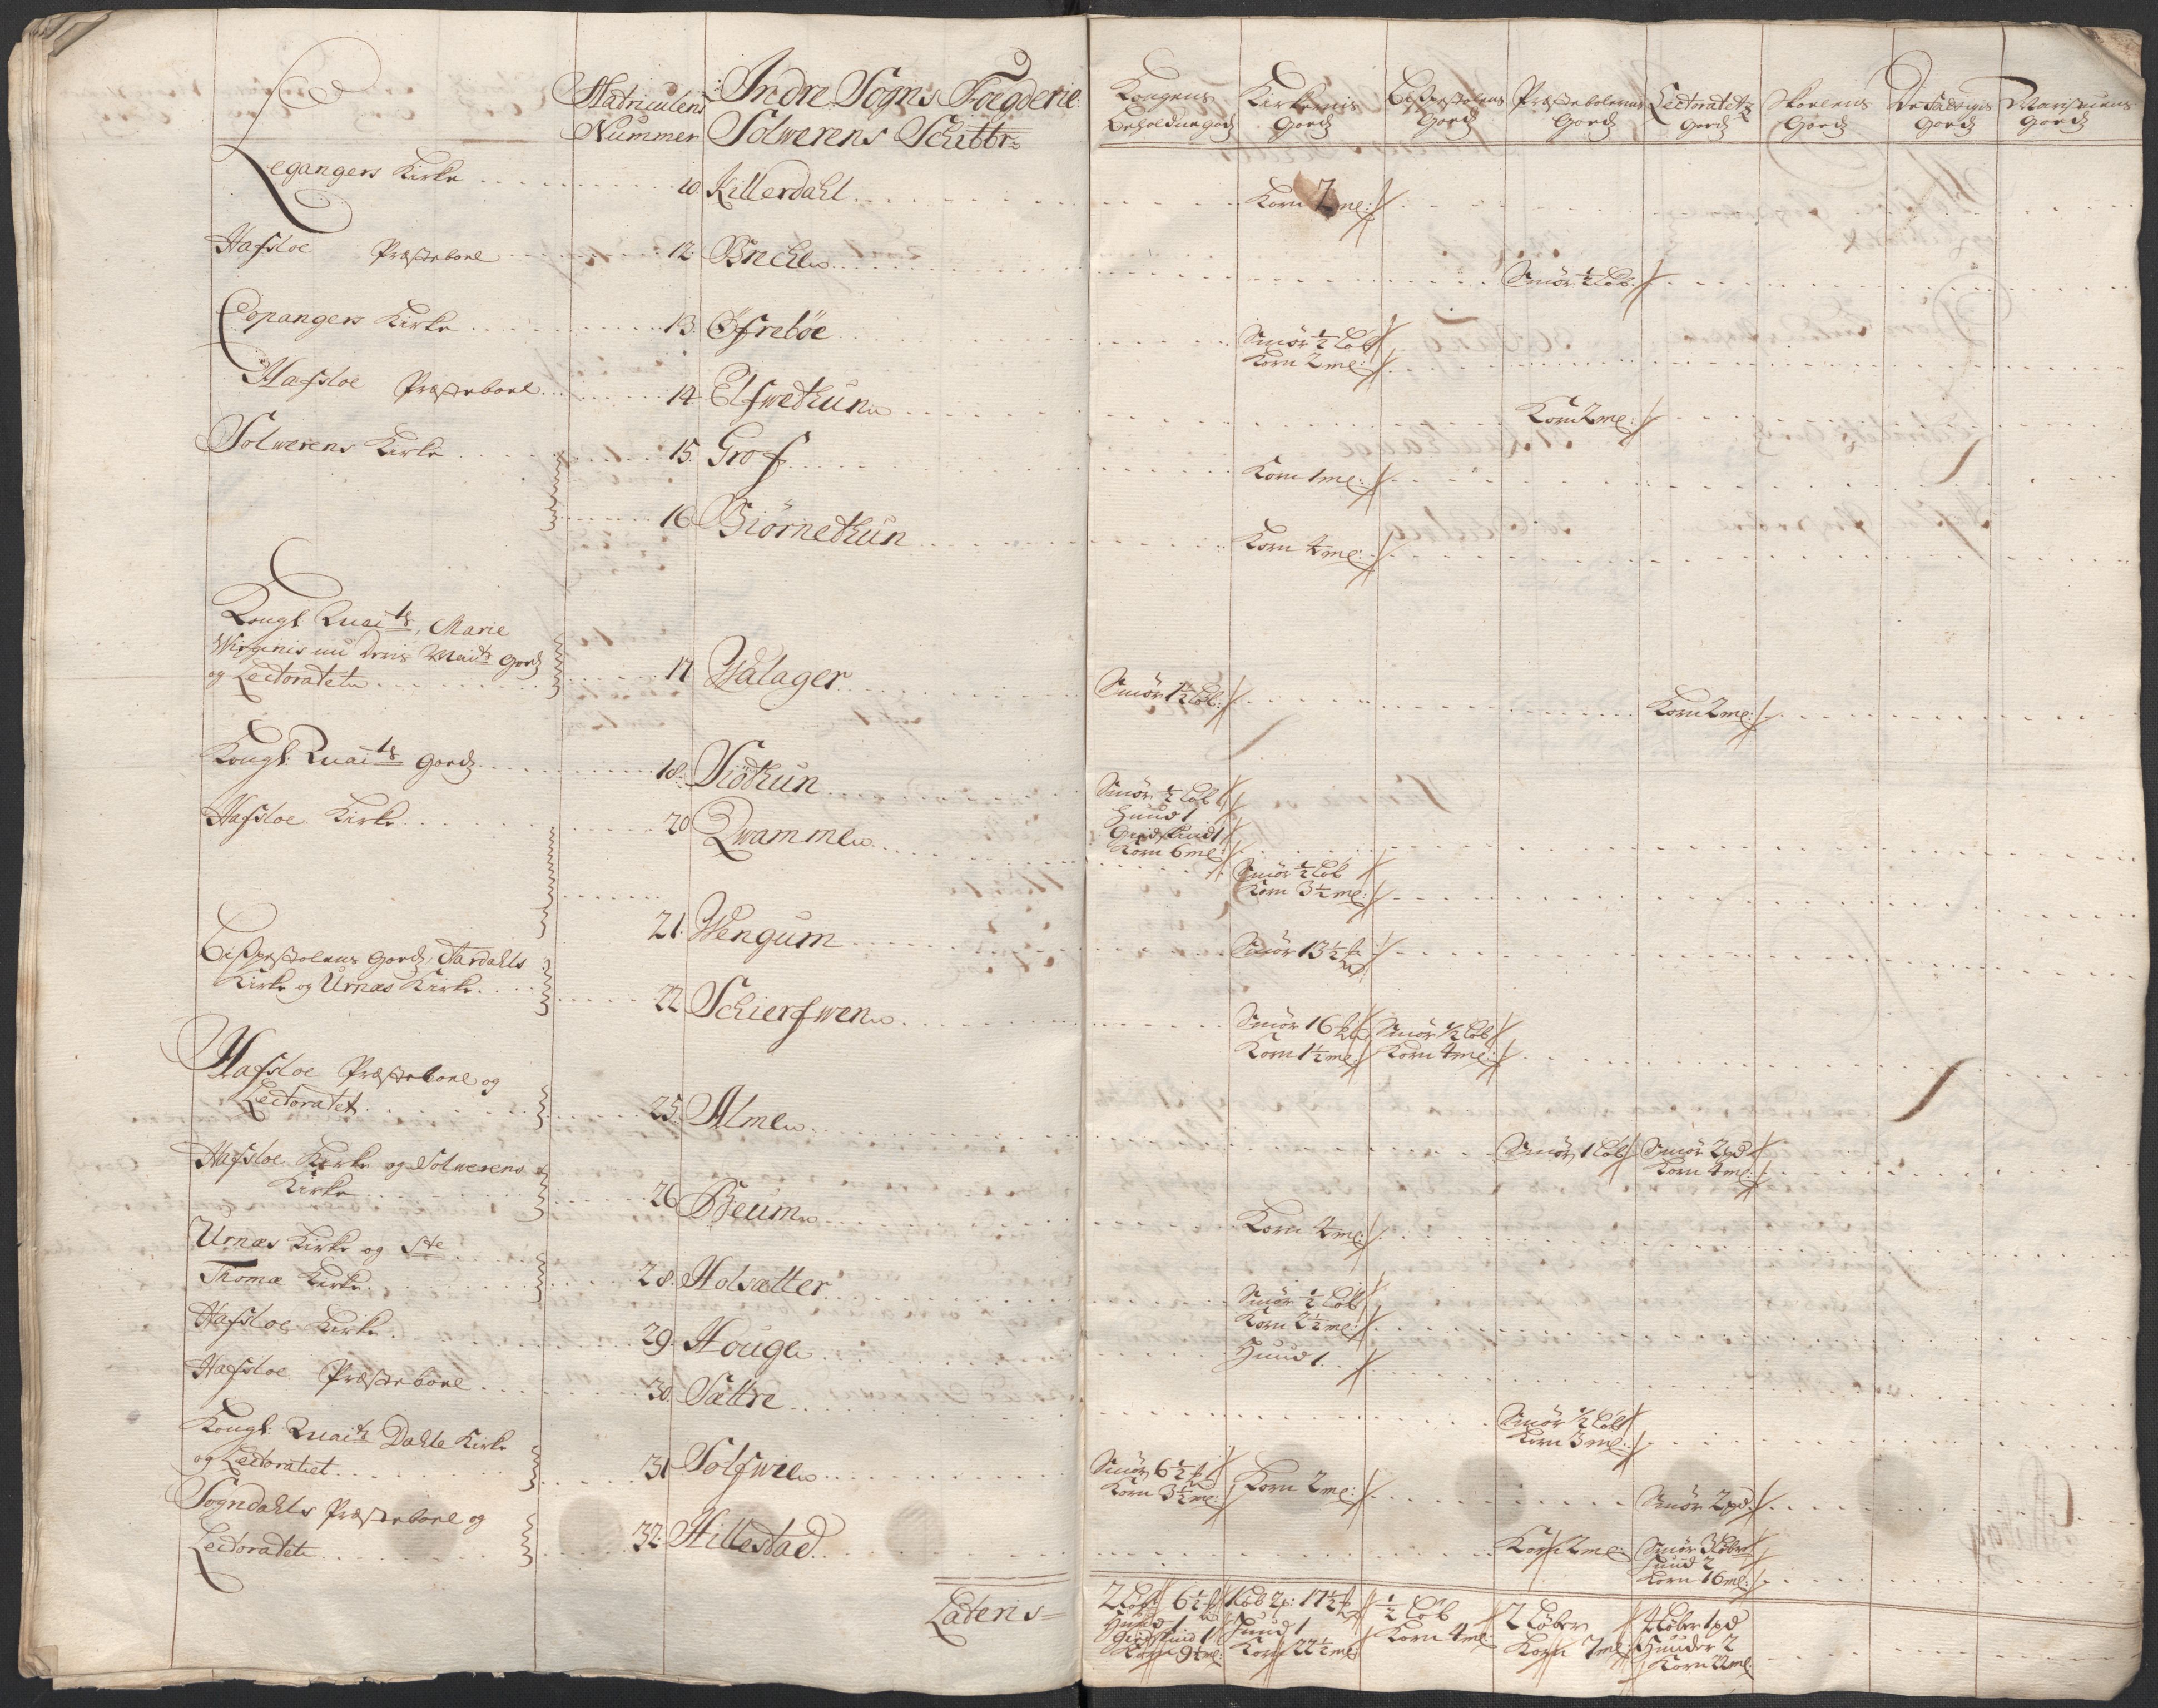 Matriculens Nummer
Indre Sogns Foegderie
Solwerens Schibbr:
Kongens Beholdne godz
Kirkernis Godz
Bispestolens Godz
Præstebolernes Godz
Lectoratetz Godz
Skolens Godz
De fattiges Godz
Legangers Kirke 10. Killerdahl Korn 2 me:
Hafsloe Præsteboel 12. Brecke Smör ½ løb:
Copangers Kirke 13. Øfrebøe Smör ½ løb
Korn 2 me:
Hafsloe Præsteboel 14 Elfwethun Korn 2 me:
Solwerens Kirke 15. Grof Korn 1 me:
16 Biörnethun Korn 4 me:
Kongl. Mai:ts, Marie
Wirginis nu Deris Mai:ts Godz
og Lectoratet 17 Walager Smör 1½ løb: Korn 2 me:
Kongl: Mai:ts Godz 18. Siöthun Smör ½ løb
Huud 1
Giedskind 1
Korn 6 me:
Hafsloe Kirke 20 Qvamme Smör ½ løb
Korn 3½ me:
21. Wengum Smör 13½
Bispestolens Godz, Aardahls
Kirke og Urnæs Kirke 22 Schierfwen Smör 16 Smör ½ løb
Korn 1½ me: Korn 4 me:
Hafsloe Præsteboel og
Lectoratet 25. Alme Smör 1 løb Smör 2 pd
Korn 4 me:
Hafsloe Kirke og Solwerens
Kirke 26 Beum Korn 4 me:
Urnæs Kirke og Ste
Thomæ Kirke 28. Holsætter Smör ½ løb
Korn 2½ me:
Hafsloe Kirke 29. Houge Huud 1
Hafsloe Præsteboel 30. Sættre Smör ½ løb
Korn 3 me:
Kongl: Mai:ts Dahle Kirke
og Lectoratet 31 Solfwie Smör 6½ Korn 2 me: Smör 2 pd:
Korn 3½ me:
Sogndahls Præsteboel og
Lectoratet 32. Hillestad Korn 2 me: Smör 3 løber
Huud 2
Korn 16 me:
Lateris
2 løb 6½
Huud 1
Giedskind 1
Korn 9½ me:
Huud 1
Korn 22½ me:
½ løb
Korn 4 me:
2 løber
Korn 7 me:
4 løber 1 pd
Huuder 2
Korn 22 me: